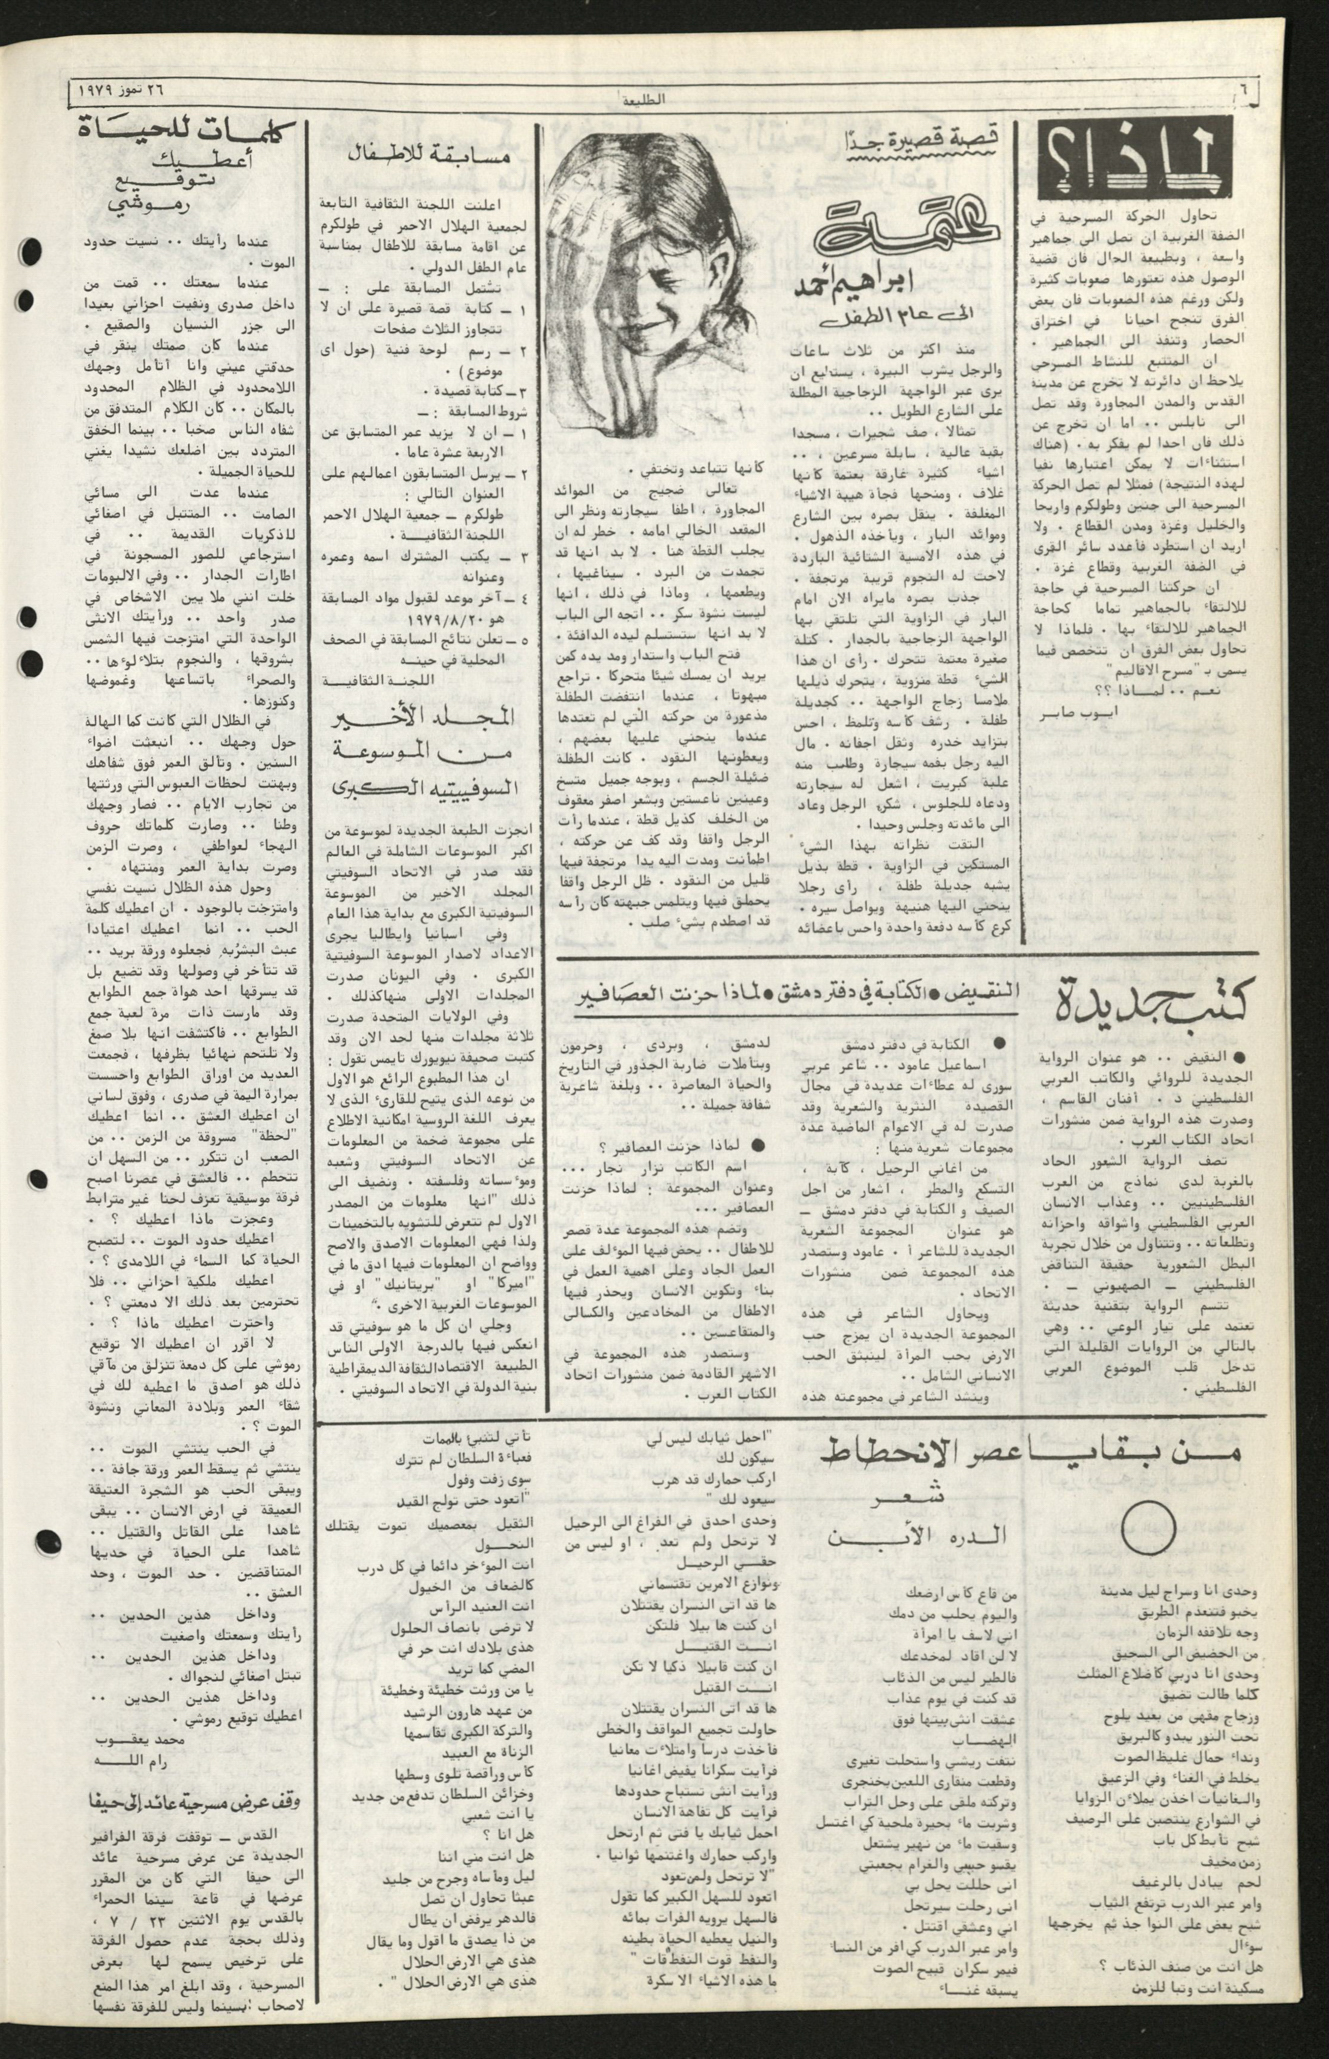 ٦
الطليعة
٢٦ تموز ١٩٧٩
لماذا؟
تحاول الحركة المسرحية في
الضفة الغربية ان تصل الى جماهير
واسعة ، وبطبيعة الحال فان قضية
الوصول هذه تعتورها صعوبات كثيرة
ولكن ورغم هذه الصعوبات فان بعض
الفرق تنجح احيانا في اختراق
الحصار وتنفذ الى الجماهير .
ان المتتبع للنشاط المسرحي
يلاحظ ان دائرته لا تخرج عن مدينة
القدس والمدن المجاورة وقد تصل
الى نابلس .. اما ان تخرج عن
ذلك فان احدا لم يفكر به . (هناك
استثناءات لا يمكن اعتبارها نفيا
لهذه النتيجة) فمثلا لم تصل الحركة
المسرحية الى جنين وطولكرم واريحا
والخليل وغزة ومدن القطاع . ولا
اريد ان استطرد فأعدد سائر القرى
في الضفة الغربية وقطاع غزة .
ان حركتنا المسرحية في حاجة
للالتقاء بالجماهير تماما كحاجة
الجماهير للالتقاء بها . فلماذا لا
تحاول بعض الفرق ان تتخصص فيما
يسمى بـ "مسرح الاقاليم"
نعم .. لماذا ؟؟
ايوب صابر
قصة قصيرة جدًا
عتمة
ابراهيم أحمد
الى عام الطفل
منذ اكثر من ثلاث ساعات
والرجل يشرب البيرة ، يستطيع ان
يرى عبر الواجهة الزجاجية المطلة
على الشارع الطويل ..
تمثالا ، صف شجيرات ، مسجدا
بقبة عالية ، سابلة مسرعين ، ..
اشياء كثيرة غارقة بعتمة كأنها
غلاف ، ومنحها فجأة هيبة الاشياء
المغلفة . ينقل بصره بين الشارع
وموائد البار ، ويأخذه الذهول .
في هذه الامسية الشتائية الباردة
لاحت له النجوم قريبة مرتجفة .
جذب بصره مايراه الان امام
البار في الزاوية التي تلتقي بها
الواجهة الزجاجية بالجدار . كتلة
صغيرة معتمة تتحرك . رأى ان هذا
الشيء قطة منزوية ، يتحرك ذيلها
ملامسا زجاج الواجهة .. كجديلة
طفلة . رشف كاسه وتلمظ ، احس
بتزايد خدره وثقل اجفانه . مال
اليه رجل بفمه سيجارة وطلب منه
علبة كبريت ، اشعل له سيجارته
ودعاه للجلوس ، شكره الرجل وعاد
الى مائدته وجلس وحيدا .
التقت نظراته بهذا الشيء
المستكين في الزاوية . قطة بذيل
يشبه جديلة طفلة ، رأى رجلا
ينحني اليها هنيهة ويواصل سيره .
كرع كأسه دفعة واحدة واحس باعضائه
كأنها تتباعد وتختفي .
تعالى ضجيج من الموائد
المجاورة ، اطفأ سيجارته ونظر الى
المقعد الخالي امامه . خطر له ان
يجلب القطة هنا . لا بد انها قد
تجمدت من البرد . سيناغيها ،
ويطعمها ، وماذا في ذلك ، انها
ليست نشوة سكر .. اتجه الى الباب
لا بد انها ستستسلم ليده الدافئة .
فتح الباب واستدار ومد يده كمن
يريد ان يمسك شيئا متحركا . تراجع
مبهوتا ، عندما انتفضت الطفلة
مذعورة من حركته التي لم تعتدها
عندما ينحني عليها بعضهم ،
ويعطونها النقود . كانت الطفلة
ضئيلة الجسم ، وبوجه جميل متسخ
وعينين ناعستين وبشعر اصفر معقوف
من الخلف كذيل قطة ، عندما رأت
الرجل واقفا وقد كف عن حركته ،
اطمأنت ومدت اليه يدا مرتجفة فيها
قليل من النقود . ظل الرجل واقفا
يحملق فيها ويتلمس جبهته كأن رأسه
قد اصطدم بشيء صلب .
مسابقة للاطفال
اعلنت اللجنة الثقافية التابعة
لجمعية الهلال الاحمر في طولكرم
عن اقامة مسابقة للاطفال بمناسبة
عام الطفل الدولي .
تشتمل المسابقة على : ــ
١ ــ كتابة قصة قصيرة على ان لا
تتجاوز الثلاث صفحات
٢ ــ رسم لوحة فنية (حول اى
موضوع) .
٣ ــ كتابة قصيدة .
شروط المسابقة : ــ
١ ــ ان لا يزيد عمر المتسابق عن
الاربعة عشرة عاما .
٢ ــ يرسل المتسابقون اعمالهم على
العنوان التالي :
طولكرم ــ جمعية الهلال الاحمر
اللجنة الثقافيـــة .
٣ ــ يكتب المشترك اسمه وعمره
وعنوانه
٤ ــ آخر موعد لقبول مواد المسابقة
هو ١٩٧٩/٨/٢٠
٥ ــ تعلن نتائج المسابقة في الصحف
المحلية في حينه
اللجنة الثقافيــة
المجلد الأخير
من الموسوعة
السوفييتيه الكبرى
انجزت الطبعة الجديدة لموسوعة من
اكبر الموسوعات الشاملة في العالم
فقد صدر في الاتحاد السوفيتي
المجلد الاخير من الموسوعة
السوفيتية الكبرى مع بداية هذا العام
وفي اسبانيا وايطاليا يجرى
الاعداد لاصدار الموسوعة السوفيتية
الكبرى . وفي اليونان صدرت
المجلدات الاولى منها كذلك .
وفي الولايات المتحدة صدرت
ثلاثة مجلدات منها لحد الان وقد
كتبت صحيفة نيويورك تايمس تقول :
ان هذا المطبوع الرائع هو الاول
من نوعه الذى يتيح للقارىء الذى لا
يعرف اللغة الروسية امكانية الاطلاع
على مجموعة ضخمة من المعلومات
عن الاتحاد السوفيتي وشعبه
ومؤسساته وفلسفته . ونضيف الى
ذلك "انها معلومات من المصدر
الاول لم تتعرض للتشويه بالتخمينات
ولذا فهي المعلومات الاصدق والاصح
وواضح ان المعلومات فيها ادق ما في
"اميركا" او "بريتانيك" او في
الموسوعات الغربية الاخرى ."
وجلي ان كل ما هو سوفيتي قد
انعكس فيها بالدرجة الاولى الناس
الطبيعة الاقتصاد الثقافة الديمقراطية
بنية الدولة في الاتحاد السوفيتي .
كلمات للحياة
أعطيك
توقيع
رموشي
عندما رأيتك .. نسيت حدود
الموت .
عندما سمعتك .. قمت من
داخل صدرى ونفيت احزاني بعيدا
الى جزر النسيان والصقيع .
عندما كان صمتك ينقر في
حدقتي عيني وانا اتأمل وجهك
اللامحدود في الظلام المحدود
بالمكان .. كان الكلام المتدفق من
شفاه الناس صخبا .. بينما الخفق
المتردد بين اضلعك نشيدا يغني
للحياة الجميلة .
عندما عدت الى مسائي
الصامت .. المتبتل في اصغائي
للذكريات القديمة .. في
استرجاعي للصور المسجونة في
اطارات الجدار .. وفي الالبومات
خلت انني ملايين الاشخاص في
صدر واحد .. ورأيتك الانثى
الواحدة التي امتزجت فيها الشمس
بشروقها ، والنجوم بتلألؤها ..
والصحراء باتساعها وغموضها
وكنوزها .
في الظلال التي كانت كما الهالة
حول وجهك .. انبعثت اضواء
السنين . وتألق العمر فوق شفاهك
وبهتت لحظات العبوس التي ورثتها
من تجارب الايام .. فصار وجهك
وطنا .. وصارت كلماتك حروف
الهجاء لعواطفي ، وصرت الزمن
وصرت بداية العمر ومنتهاه .
وحول هذه الظلال نسيت نفسي
وامتزجت بالوجود . ان اعطيك كلمة
الحب .. انما اعطيك اعتيادا
عبث البشر به فجعلوه ورقة بريد ..
قد تتأخر في وصولها وقد تضيع بل
قد يسرقها احد هواة جمع الطوابع
وقد مارست ذات مرة لعبة جمع
الطوابع .. فاكتشفت انها بلا صمغ
ولا تلتحم نهائيا بظرفها ، فجمعت
العديد من اوراق الطوابع واحسست
بمرارة اليمة في صدرى ، وفوق لساني
ان اعطيك العشق .. انما اعطيك
"لحظة" مسروقة من الزمن .. من
الصعب ان تتكرر .. من السهل ان
تتحطم .. فالعشق في عصرنا اصبح
فرقة موسيقية تعزف لحنا غير مترابط
وعجزت ماذا اعطيك ؟ .
اعطيك حدود الموت .. لتصبح
الحياة كما السماء في اللامدى ؟ .
اعطيك ملكية احزاني .. فلا
تحترمين بعد ذلك الا دمعتي ؟ .
واحترت اعطيك ماذا ؟ .
لا اقرر ان اعطيك الا توقيع
رموشي على كل دمعة تنزلق من مآقي
ذلك هو اصدق ما اعطيه لك في
شقاء العمر وبلادة المعاني ونشوة
الموت ؟ .
في الحب ينتشي الموت ..
ينتشي ثم يسقط العمر ورقة جافة ..
ويبقى الحب هو الشجرة العتيقة
العميقة في ارض الانسان .. يبقى
شاهدا على القاتل والقتيل ..
شاهدا على الحياة في حديها
المتناقضين . حد الموت ، وحد
العشق ..
وداخل هذين الحدين ..
رأيتك وسمعتك واصغيت
وداخل هذين الحدين ..
تبتل اصغائي لنجواك .
وداخل هذين الحدين ..
اعطيك توقيع رموشي .
محمد يعقــوب
رام اللــه
وقف عرض مسرحية عائد إلى حيفا
القدس ــ توقفت فرقة الفرافير
الجديدة عن عرض مسرحية عائد
الى حيفا التي كان من المقرر
عرضها في قاعة سينما الحمراء
بالقدس يوم الاثنين ٢٣ / ٧ ،
وذلك بحجة عدم حصول الفرقة
على ترخيص يسمح لها بعرض
المسرحية ، وقد ابلغ امر هذا المنع
لاصحاب السينما وليس للفرقة نفسها
كتب جديدة
النقيض ● الكتابة في دفتر دمشق ● لماذا حزنت العصافير
● النقيض .. هو عنوان الرواية
الجديدة للروائي والكاتب العربي
الفلسطيني د . أفنان القاسم ،
وصدرت هذه الرواية ضمن منشورات
اتحاد الكتاب العرب .
تصف الرواية الشعور الحاد
بالغربة لدى نماذج من العرب
الفلسطينيين .. وعذاب الانسان
العربي الفلسطيني واشواقه واحزانه
وتطلعاته .. وتتناول من خلال تجربة
البطل الشعورية حقيقة التناقض
الفلسطيني ــ الصهيوني ــ .
تتسم الرواية بتقنية حديثة
تعتمد على تيار الوعي .. وهي
بالتالي من الروايات القليلة التي
تدخل قلب الموضوع العربي
الفلسطيني .
● الكتابة في دفتر دمشق
اسماعيل عامود .. شاعر عربي
سورى له عطاءات عديدة في مجال
القصيده النثرية والشعرية وقد
صدرت له في الاعوام الماضية عدة
مجموعات شعرية منها :
من اغاني الرحيل ، كآبة ،
التسكع والمطر ، اشعار من اجل
الصيف و الكتابة في دفتر دمشق ــ
هو عنوان المجموعة الشعرية
الجديدة للشاعر أ . عامود وستصدر
هذه المجموعة ضمن منشورات
الاتحاد .
ويحاول الشاعر في هذه
المجموعة الجديدة ان يمزج حب
الارض بحب المرأة لينبثق الحب
الانساني الشامل ..
وينشد الشاعر في مجموعته هذه
لدمشق ، وبردى ، وحرمون
وبتأملات ضاربة الجذور في التاريخ
والحياة المعاصرة .. وبلغة شاعرية
شفافة جميلة ..
● لماذا حزنت العصافير ؟
اسم الكاتب نزار نجار ...
وعنوان المجموعة : لماذا حزنت
العصافير ...
وتضم هذه المجموعة عدة قصص
للاطفال .. يحض فيها المؤلف على
العمل الجاد وعلى اهمية العمل في
بناء وتكوين الانسان ويحذر فيها
الاطفال من المخادعين والكسالى
والمتقاعسين ..
وستصدر هذه المجموعة في
الاشهر القادمة ضمن منشورات اتحاد
الكتاب العرب .
من بقايا عصر الانحطاط
شعر
الدره الأبن
وحدى انا وسراج ليل مدينة
يخبو فتنعدم الطريق
وجه تلاقفه الزمان
من الحضيض الى السحيق
وحدى انا دربي كاضلاع المثلث
كلما طالت تضيق
وزجاج مقهى من بعيد يلوح
تحت النور يبدو كالبريق
ونداء حمال غليظ الصوت
يخلط في الغناء وفي الزعيق
والبغانيات اخذن يملأن الزوايا
في الشوارع ينتصبن على الرصيف
شبح تأبط كل باب
زمن مخيف
لحم يبادل بالرغيف
وامر عبر الدرب ترتفع الثياب
شبح يعض على النواجذ ثم يخرجها
سؤال
هل انت من صنف الذئاب ؟
مسكينة انت وتبا للزمن
من قاع كأس ارضعك
واليوم يحلب من دمك
اني لاسف يا امرأة
لا لن اقاد لمخدعك
فالطير ليس من الذئاب
قد كنت في يوم عذاب
عشقت انثى بيتها فوق
الهضــاب
نتفت ريشي واستحلت تغيرى
وقطعت منقارى اللعين بخنجرى
وتركته ملقى على وحل التراب
وشربت ماء بحيرة ملحية كي اغتسل
وسقيت ماء من نهير يشتعل
يقسو حبيبي والغرام يجعبتي
اني حللت يحل بي
اني رحلت سيرتحل
اني وعشقي اقتتل .
وامر عبر الدرب كي افر من النساء
فيمر سكران قبيح الصوت
يسبقه غنــاء
"احمل ثيابك ليس لي
سيكون لك
اركب حمارك قد هرب
سيعود لك "
وحدى احدق في الفراغ الى الرحيل
لا ترتحل ولم تعد ، او ليس من
حقــي الرحيــل
ونوازع الامرين تقتسماني
ها قد اتى النسران يقتتلان
ان كنت هابيلا فلتكن
انــت القتيــل
ان كنت قابيلا ذكيا لا تكن
انــت القتيل
ها قد اتى النسران يقتتلان
حاولت تجميع المواقف والخطى
فأخذت درسا وامتلأت معانيا
فرأيت سكرانا يقيض اغانيا
ورأيت انثى تستباح حدودها
فرأيت كل تفاهة الانسان
احمل ثيابك يا فتى ثم ارتحل
واركب حمارك واغتنمها ثوانيا .
"لا ترتحل ولمن تعود
اتعود للسهل الكبير كما تقول
فالسهل يرويه الفرات بمائه
والنيل يعطيه الحياة بطينه
والنفط قوت النفط قات "
ما هذه الاشياء الا سكرة
تأتي لتنبئ بالممات
فعباءة السلطان لم تترك
سوى زفت وفول
"اتعود حتى تولج القيد
الثقيل بمعصميك تموت يقتلك
النحــول
انت المؤخر دائما في كل درب
كالضعاف من الخيول
انت العنيد الرأس
لا ترضى بانصاف الحلول
هذى بلادك انت حر في
المضي كما تريد
يا من ورثت خطيئة وخطيئة
من عهد هارون الرشيد
والتركة الكبرى تقاسمها
الزناة مع العبيد
كأس وراقصة تلوى وسطها
وخزائن السلطان تدفع من جديد
يا انت شعبي
هل انا ؟
هل انت مني اننا
ليل ومأساه وجرح من جليد
عبثا تحاول ان تصل
فالدهر يرفض ان يطال
من ذا يصدق ما اقول وما يقال
هذى هي الارض الحلال
هذى هي الارض الحلال " .